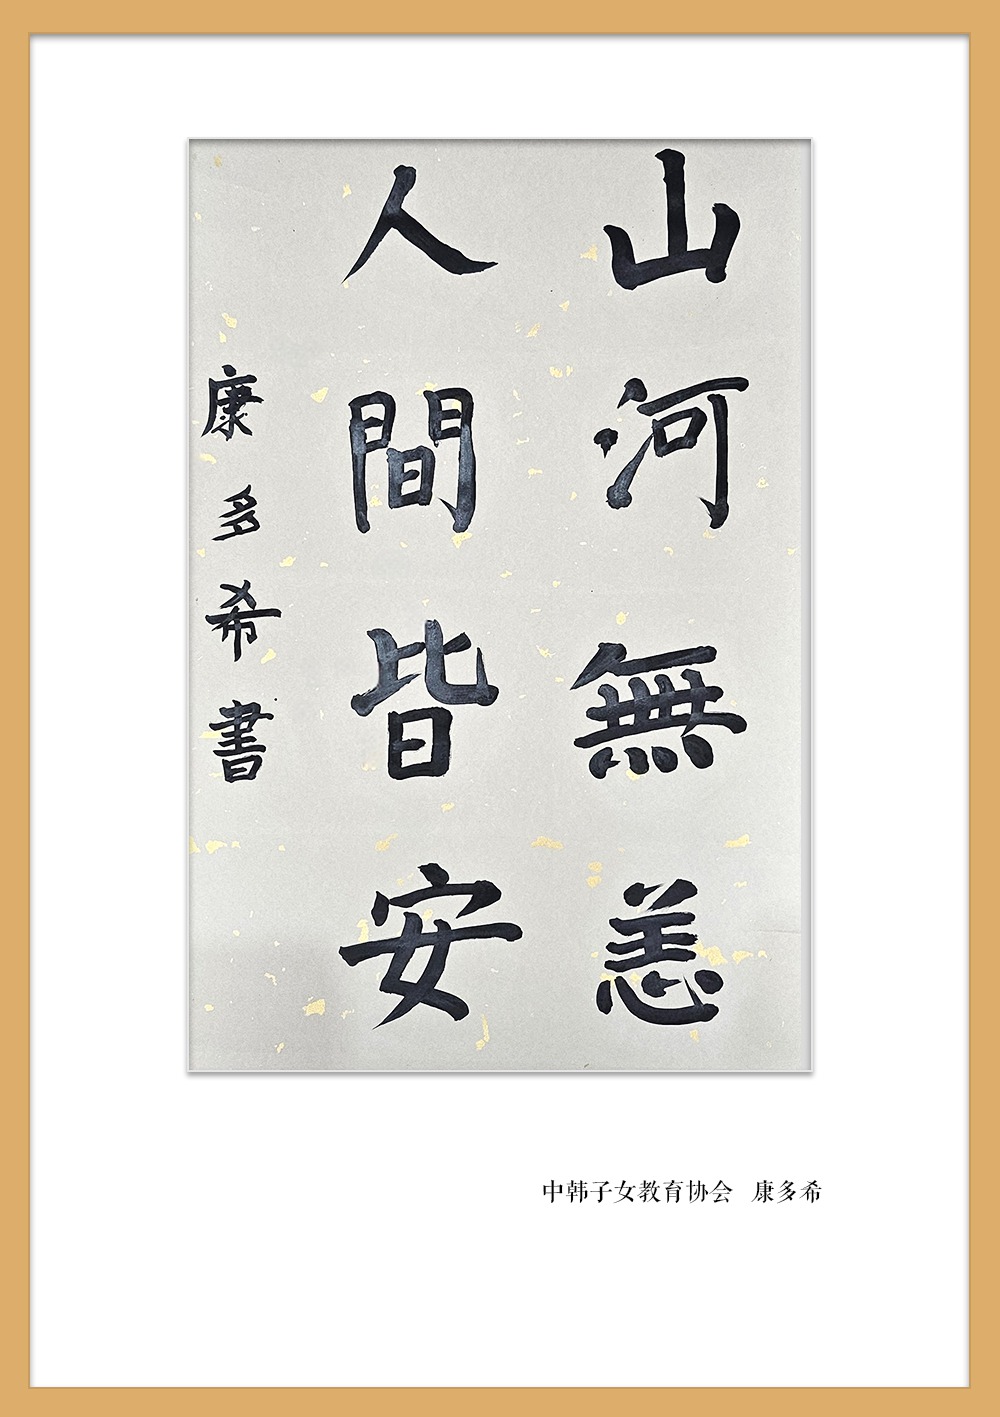 山河無恙
人間皆安
康多希書
中韩子女教育协会 康多希